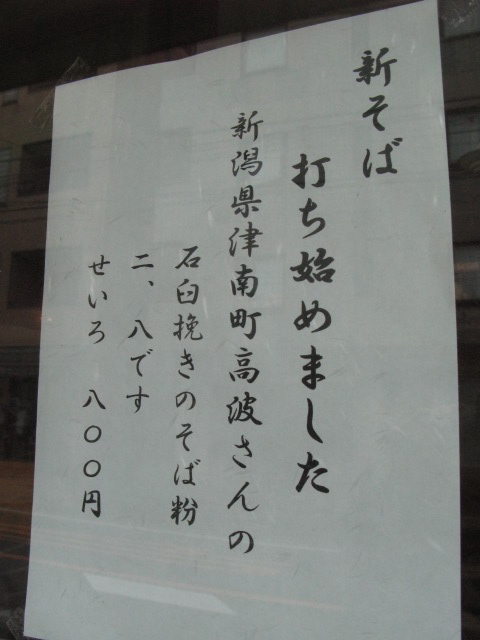 新そば
打ち始めました
新潟県津南町高波さんの
石臼挽きのそば粉
二、八です
せいろ 八〇〇円